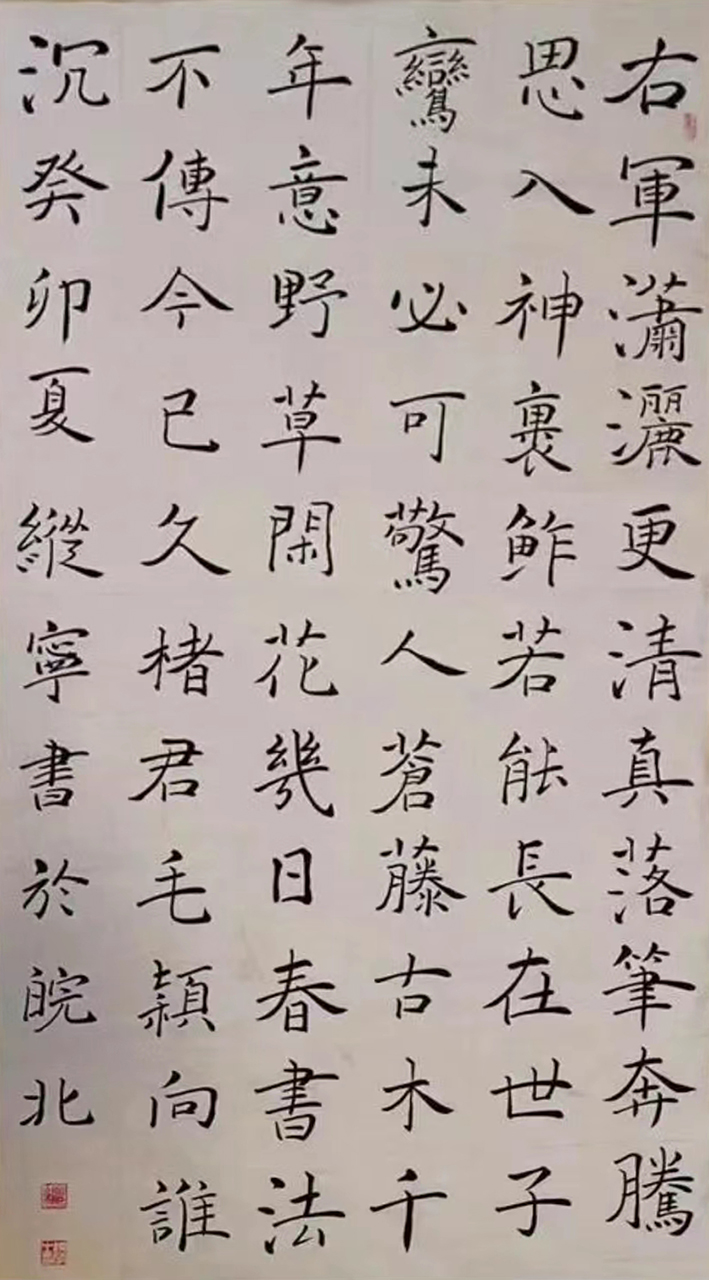 右軍瀟灑更清真落筆奔騰
思入神裹鮓若能長在世子
鸞未必可驚人蒼藤古木千
年意野草閑花幾日春書法
不傳今已久楮君毛穎向誰
沉癸卯夏縱寧書於皖北